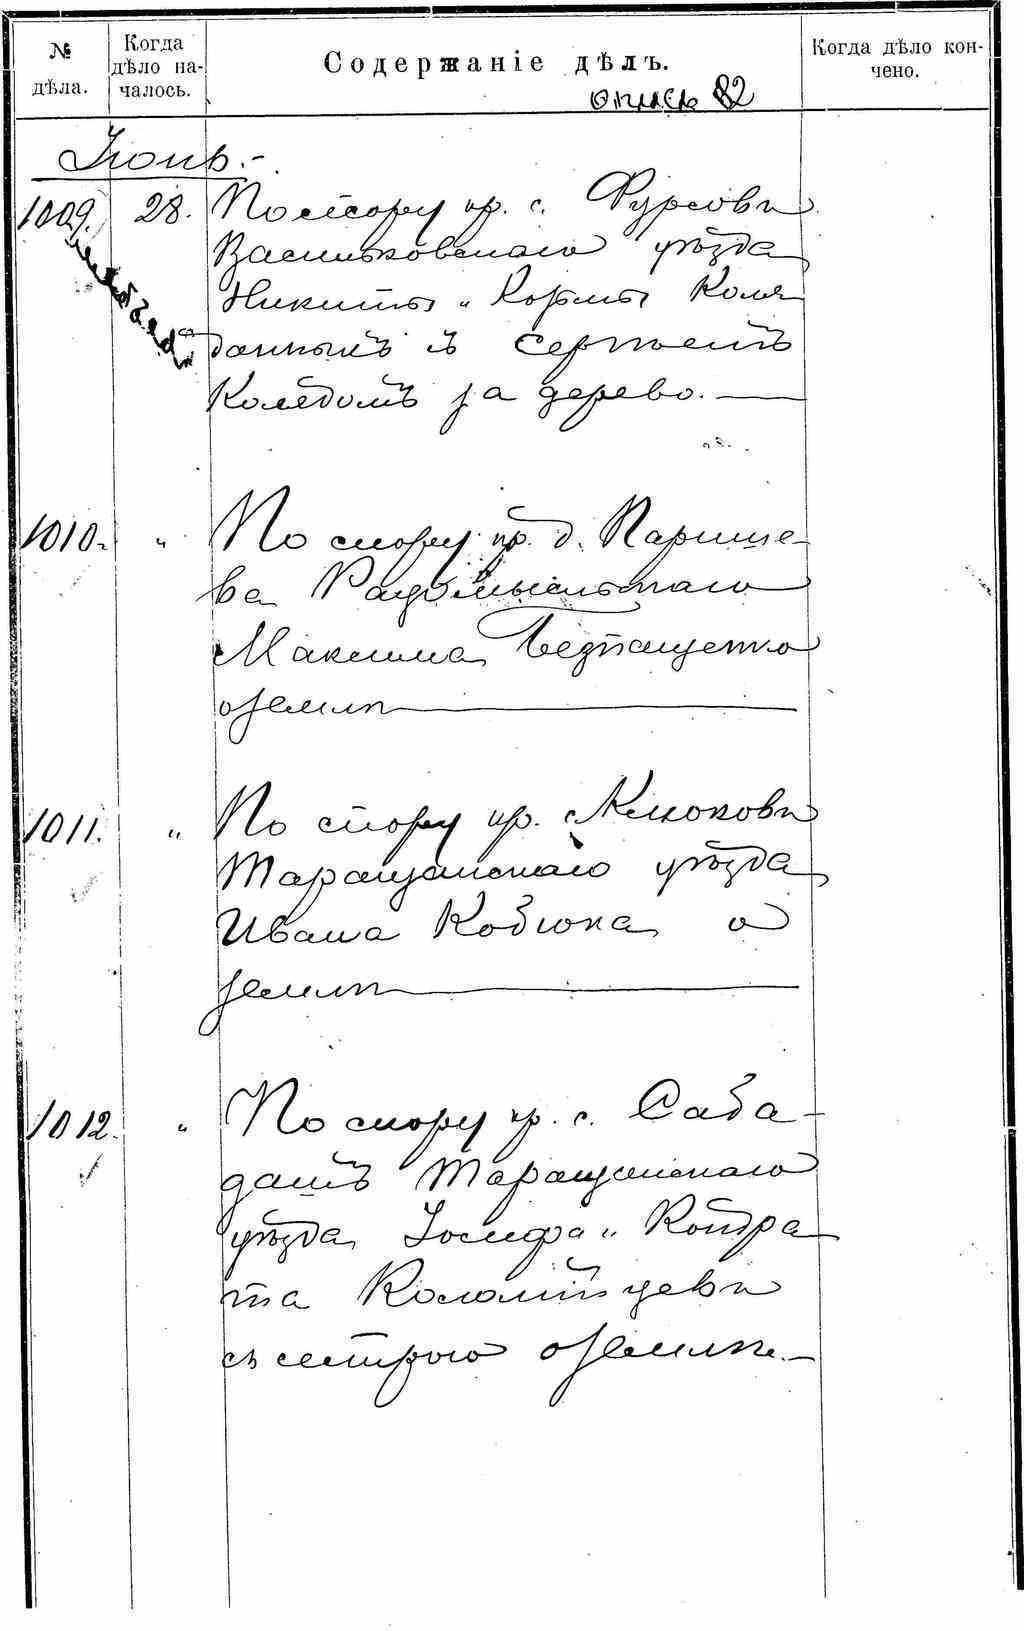 № дѣла.
Когда дѣло на-
чалось.
Содержаніе дѣлъ.
Когда дѣло кон-
чено.
опись 82
Іюнь.-
1009. 28. По спору кр. с. Фурсовъ
Васильковскаго уѣзда
Никиты и Козьмы Коля
данныхъ съ Сергѣемъ
Колядомъ за дерево.
1010. " По спору кр. д. Парише-
ва Радомысльскаго
Максима
о землѣ
1011. " По спору кр. с. Клюковъ
Таращанскаго уѣзда
Ивана Кобзюка о
землѣ
1012. " По спору кр. с. Саба-
дашъ Таращанскаго
уѣзда Іосифа и Кондра
та Коломійцевъ
съ сестрою о землѣ.-